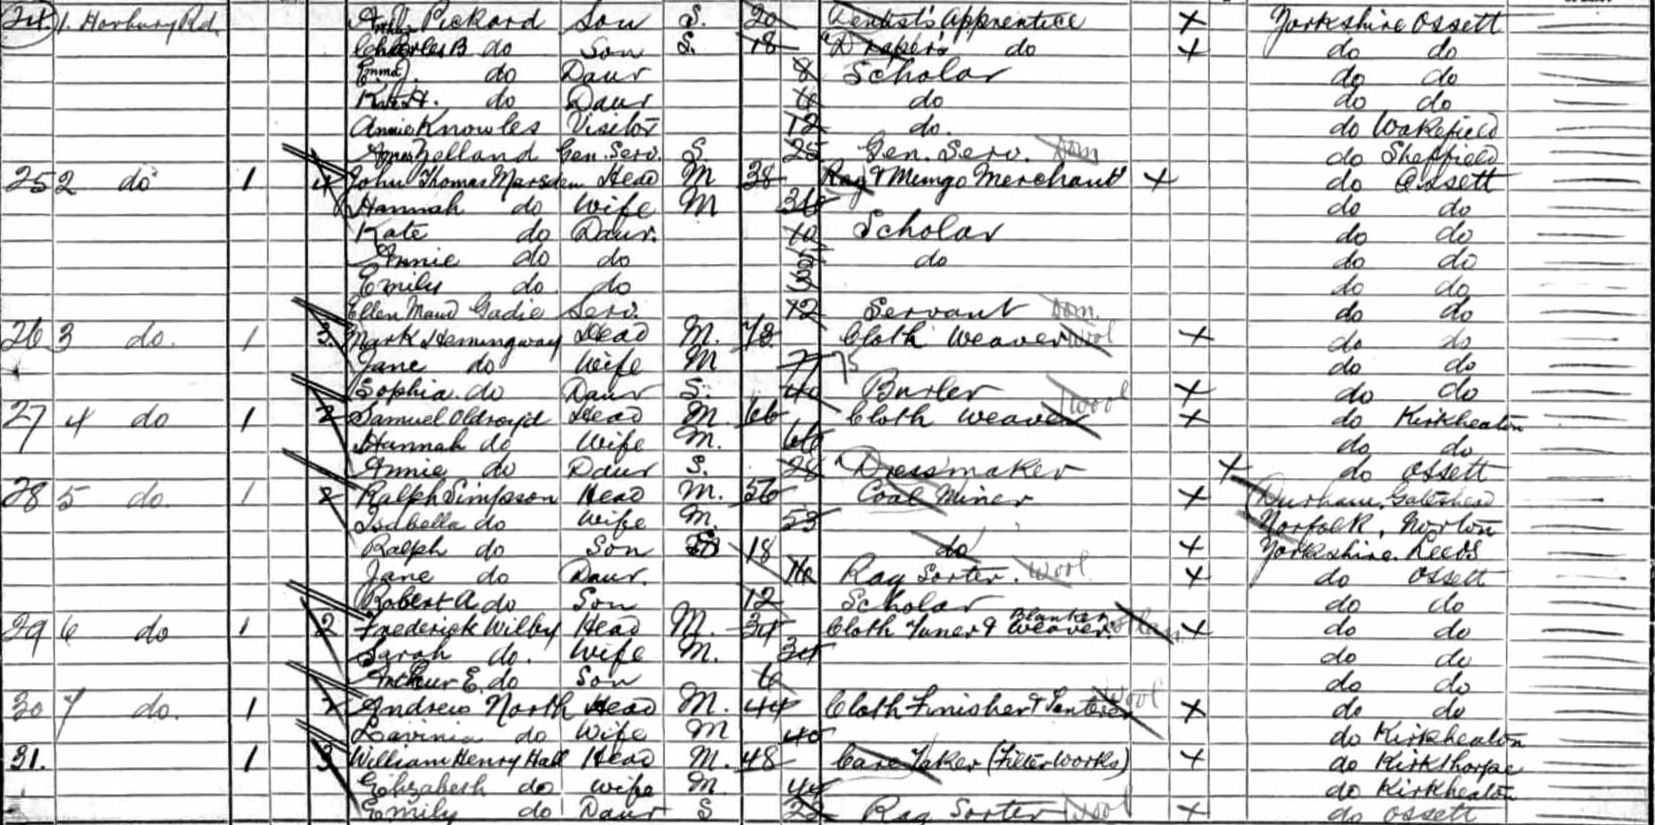 24 1 Horbury Rd. Pickard Son S. 20 Dentist's Apprentice X Yorkshire Ossett
Charles B do Son S. 18 Draper's do X do do
Emma J. do Daur 8 Scholar do do
Kate H. do Daur do do do
Annie Knowles Visitor 12 do. do Wakefield
Zelland Gen. Serv. S. 25 Gen. Serv. Dom do Sheffield
25 2 do 1 4 John Thomas Marsden Head M 38 Rag & Mungo Merchant X do Ossett
Hannah do Wife M 36 do do
Kate do Daur. 10 Scholar do do
Annie do do 5 do do do
Emily do do 3 do do
Ellen Maud Gadie Serv. 12 Servant Dom. do do
26 3 do. 1 3 Mark Hemingway Head M. 78 Cloth Weaver Wool X do do
Jane do Wife M 75 do do
Sophia do Daur S. 40 Burler Wool X do do
27 4 do 1 2 Samuel Oldroyd Head M. 66 Cloth Weaver X do Kirkheaton
Hannah do Wife M. 66 do do
Annie do Daur S. 28 Dressmaker X do Ossett
28 5 do. 1 2 Ralph Simpson Head M. 56 Coal Miner X Durham, Gateshead
Isabella do Wife M. 53 Norfolk, Norton
Ralph do Son 18 do X Yorkshire. Leeds
Jane do Daur. 16 Rag Sorter. Wool X do Ossett
Robert A do Son 12 Scholar do do
29 6 do 1 2 Frederick Wilby Head M. 34 Cloth Tuner & Blanket Weaver X do do
Sarah do. Wife M. 34 do do
Arthur E. do Son 6 do do
30 7 do. 1 2 Andrew North Head M. 44 Cloth Finisher & Tenterer Wool X do do
Lavinia do Wife M 40 do Kirkheaton
31. 1 3 William Henry Hall Head M. 48 Care Taker (Filter Works) X do Kirkthorpe
Elizabeth do Wife M. 44 do Kirkheaton
Emily do Daur S 22 Rag Sorter Wool X do Ossett